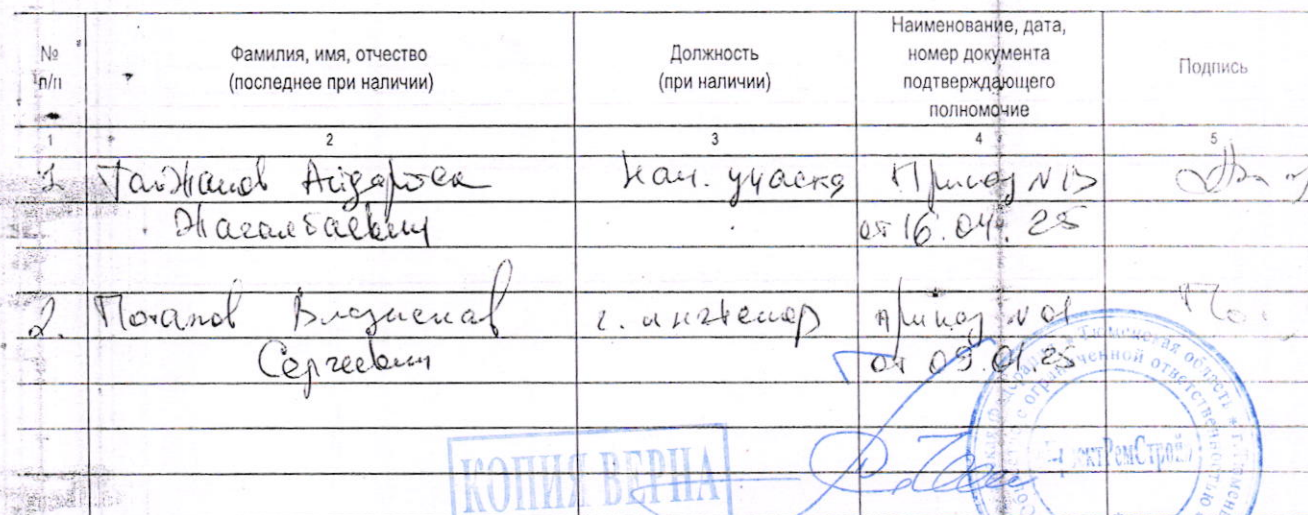 № п/п
Фамилия, имя, отчество (последнее при наличии)
Должность (при наличии)
Наименование, дата, номер документа подтверждающего полномочие
Подпись
1 2 3 4 5
1. Айдарбек нач. участка Приказ N13
от 16.04.25
2. Потапов Владислав г. инженер приказ N 01
Сергеевич от 09.01.25
КОПИЯ ВЕРНА
Тюменская область
с ограниченной ответственностью
РемСтрой